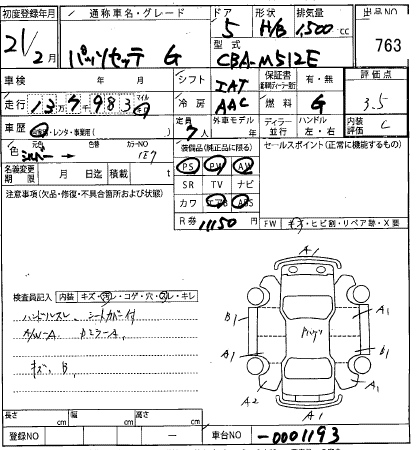 初度登録年月 通称車名・グレード ドア 形状 排気量 出品NO
21/2月 パッソセッテ G 5 H/B 1,500 cc 763
型式 CBA-M512E
車検 年 月 シフト IAT 保証書 有・無 評価点
走行 13万7千983 マイル km 冷房 AAC 燃料 G 3.5
車歴 自家用・レンタ・事業用( ) 定員 7人 外車モデル 年 ディーラー 並行 ハンドル 左・右 内装評価 C
色 元色 シルバー 色替 カラーNO 1E7 装備品(純正品に限る) セールスポイント(正常に機能するもの)
名義変更期限 月 日迄 積載 t PS PW AW
注意事項(欠品・修復・不具合箇所および状態) SR TV ナビ
カワ エアB ABS
R券 11150 円 FW キズ・ヒビ割・リペア跡・X 要
検査員記入 内装 キズ・汚レ・コゲ・穴・スレ・キレ
ハンドルスレ シートカバー付
A/W-A
キズ、B、
A1
B1 A1
A1 B1
A2 A1
A1
長さ cm 幅 cm 高さ cm
登録NO 車台NO -0001193